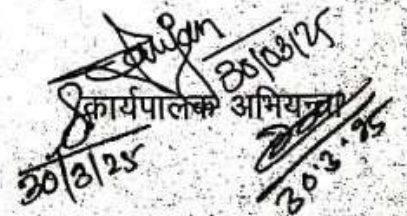 30/03/25
कार्यपालक अभियन्ता
30/3/25
30.3.25